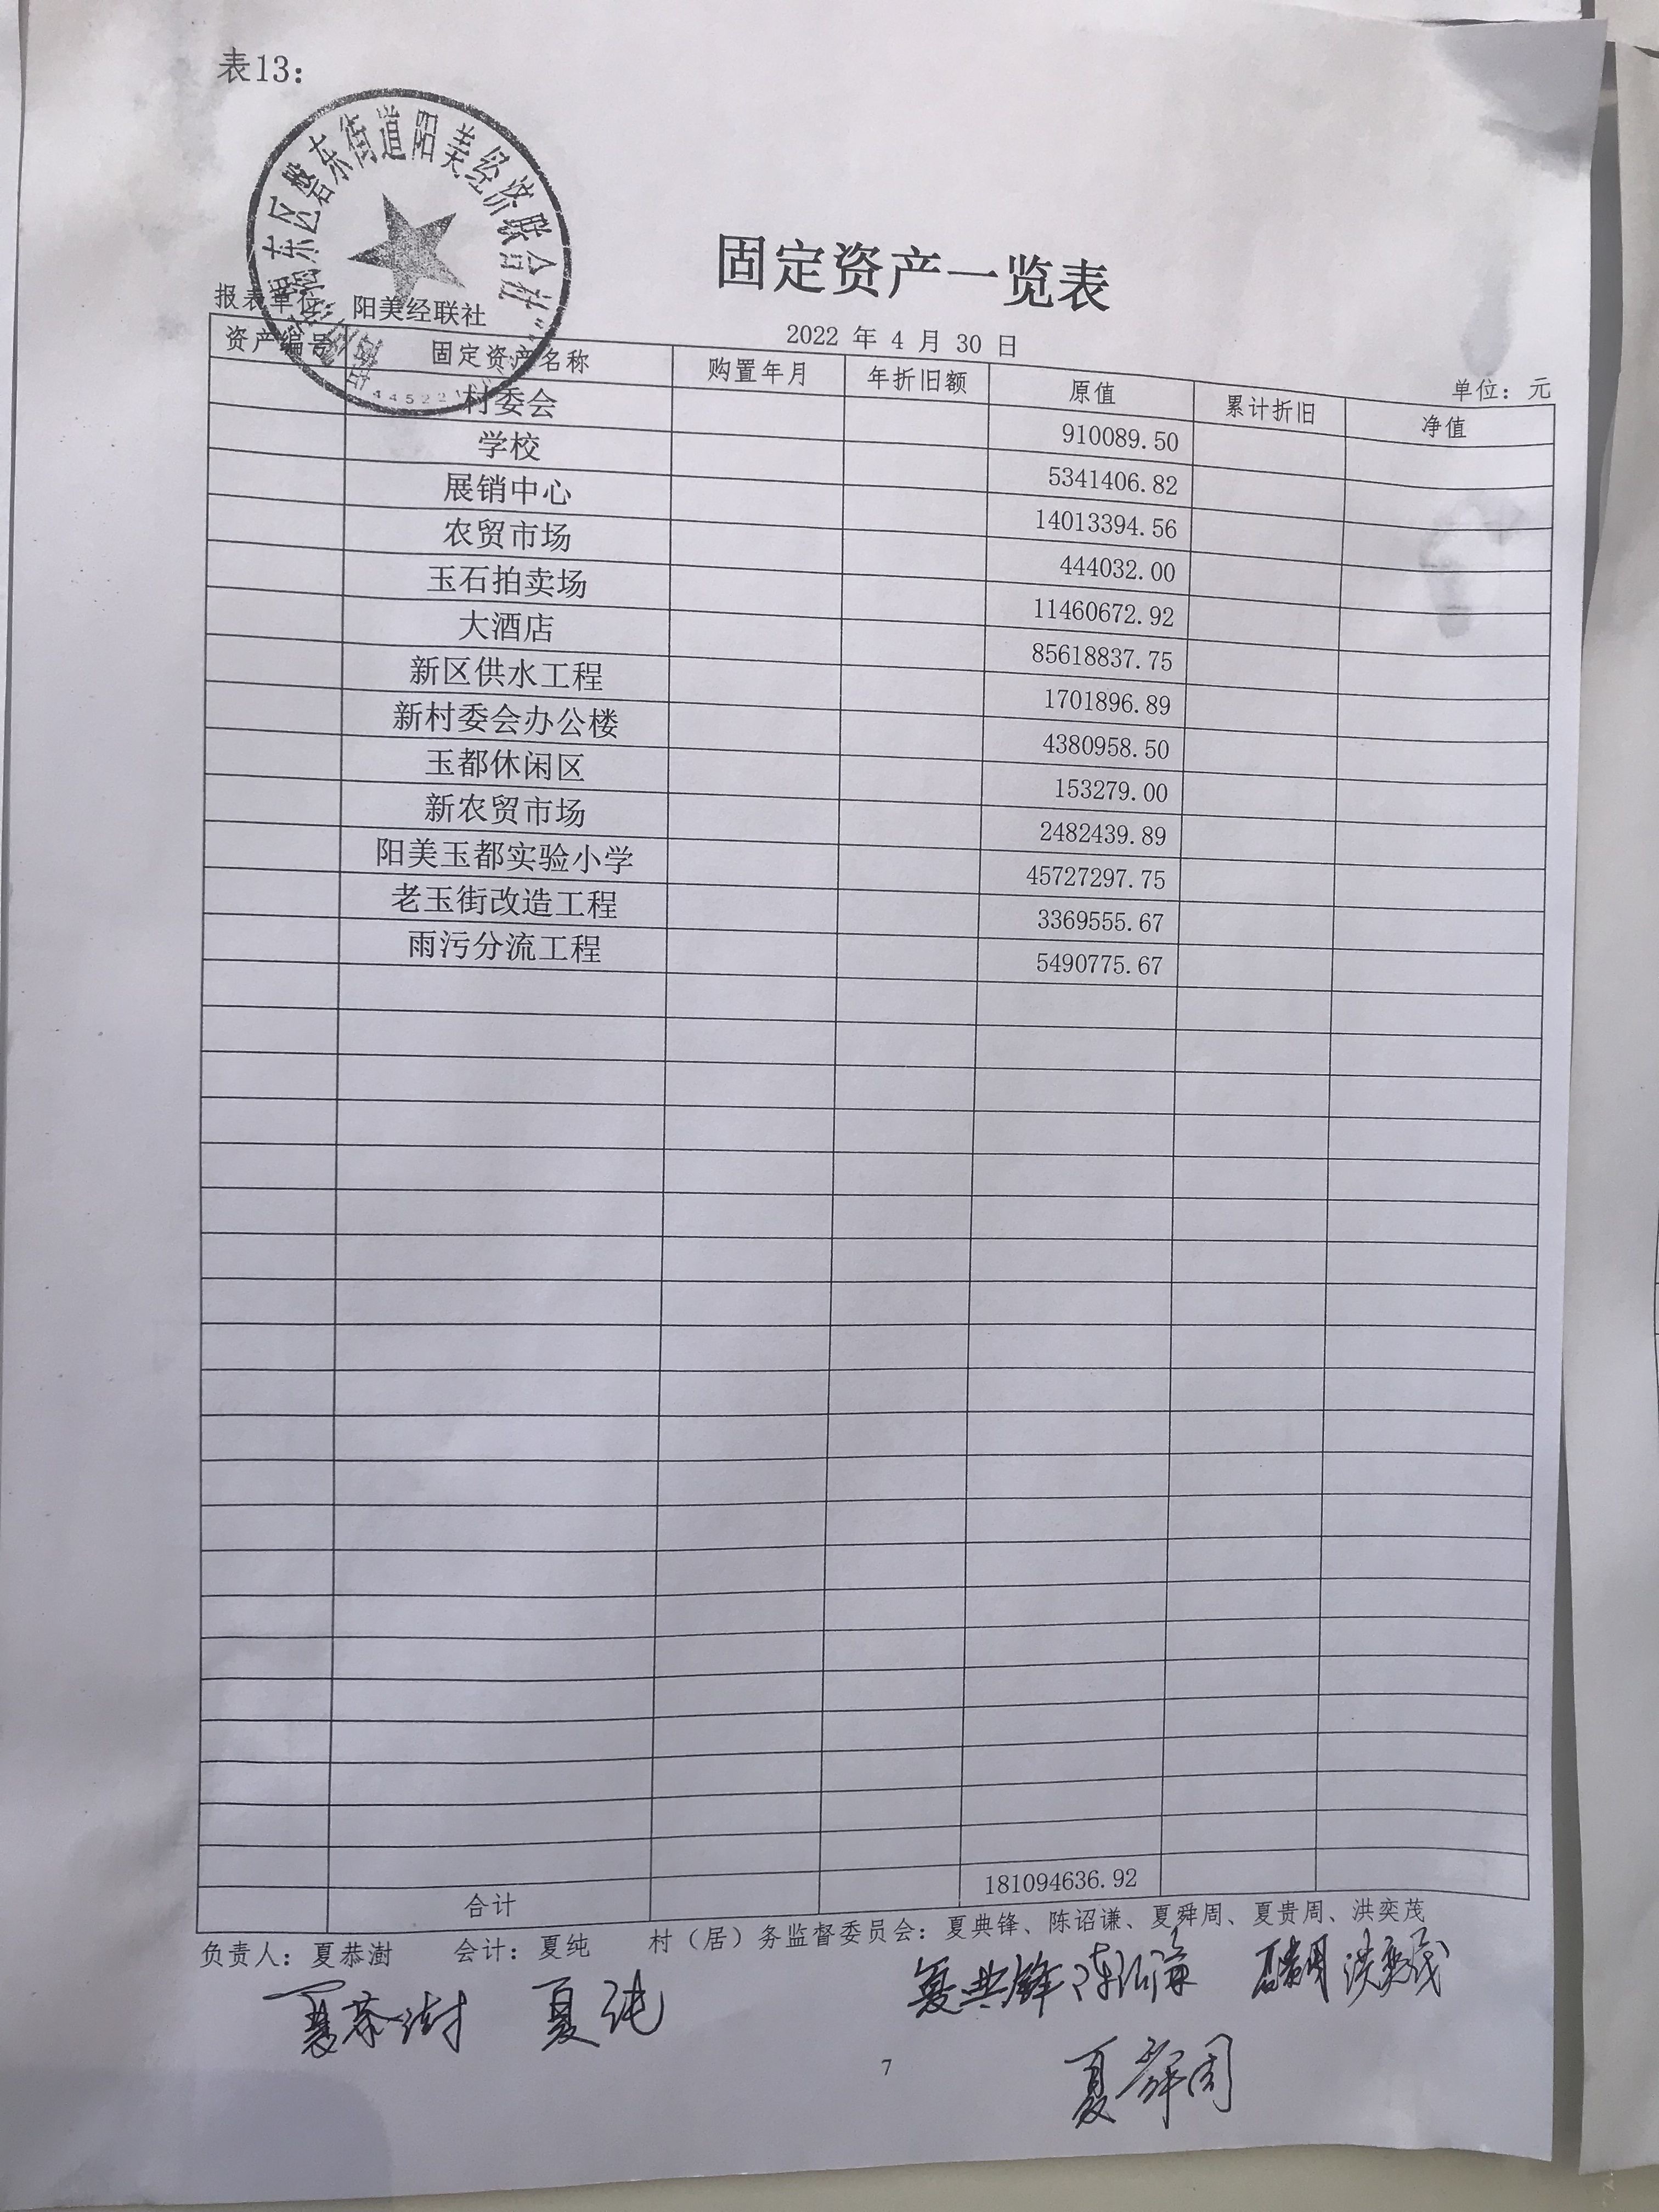 表13:
东区磐东街道阳美经济联合社
固定资产一览表
报表单位: 阳美经联社
2022 年 4 月 30 日
单位: 元
资产编号 固定资产名称 购置年月 年折旧额 原值 累计折旧 净值
村委会 910089.50
学校 5341406.82
展销中心 14013394.56
农贸市场 444032.00
玉石拍卖场 11460672.92
大酒店 85618837.75
新区供水工程 1701896.89
新村委会办公楼 4380958.50
玉都休闲区 153279.00
新农贸市场 2482439.89
阳美玉都实验小学 45727297.75
老玉街改造工程 3369555.67
雨污分流工程 5490775.67
合计 181094636.92
负责人: 夏恭澍 会计: 夏纯 村（居）务监督委员会: 夏典锋、陈诏谦、夏舜周、夏贵周、洪奕茂
夏恭澍 夏纯 夏典锋 夏贵周 洪奕茂
夏舜周
7